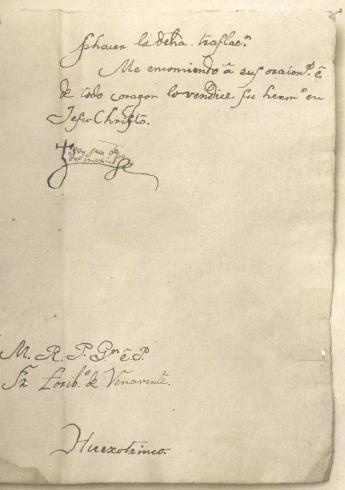 la dcha. traslac.n
Me encomiendo â sus oraion.s ê
de todo coraçon lo vendice su herm.o en
Jesu Christo.
M. R. P. Gn ê P.
Fr. Torib.o de Venavente.
Huexotzinco.